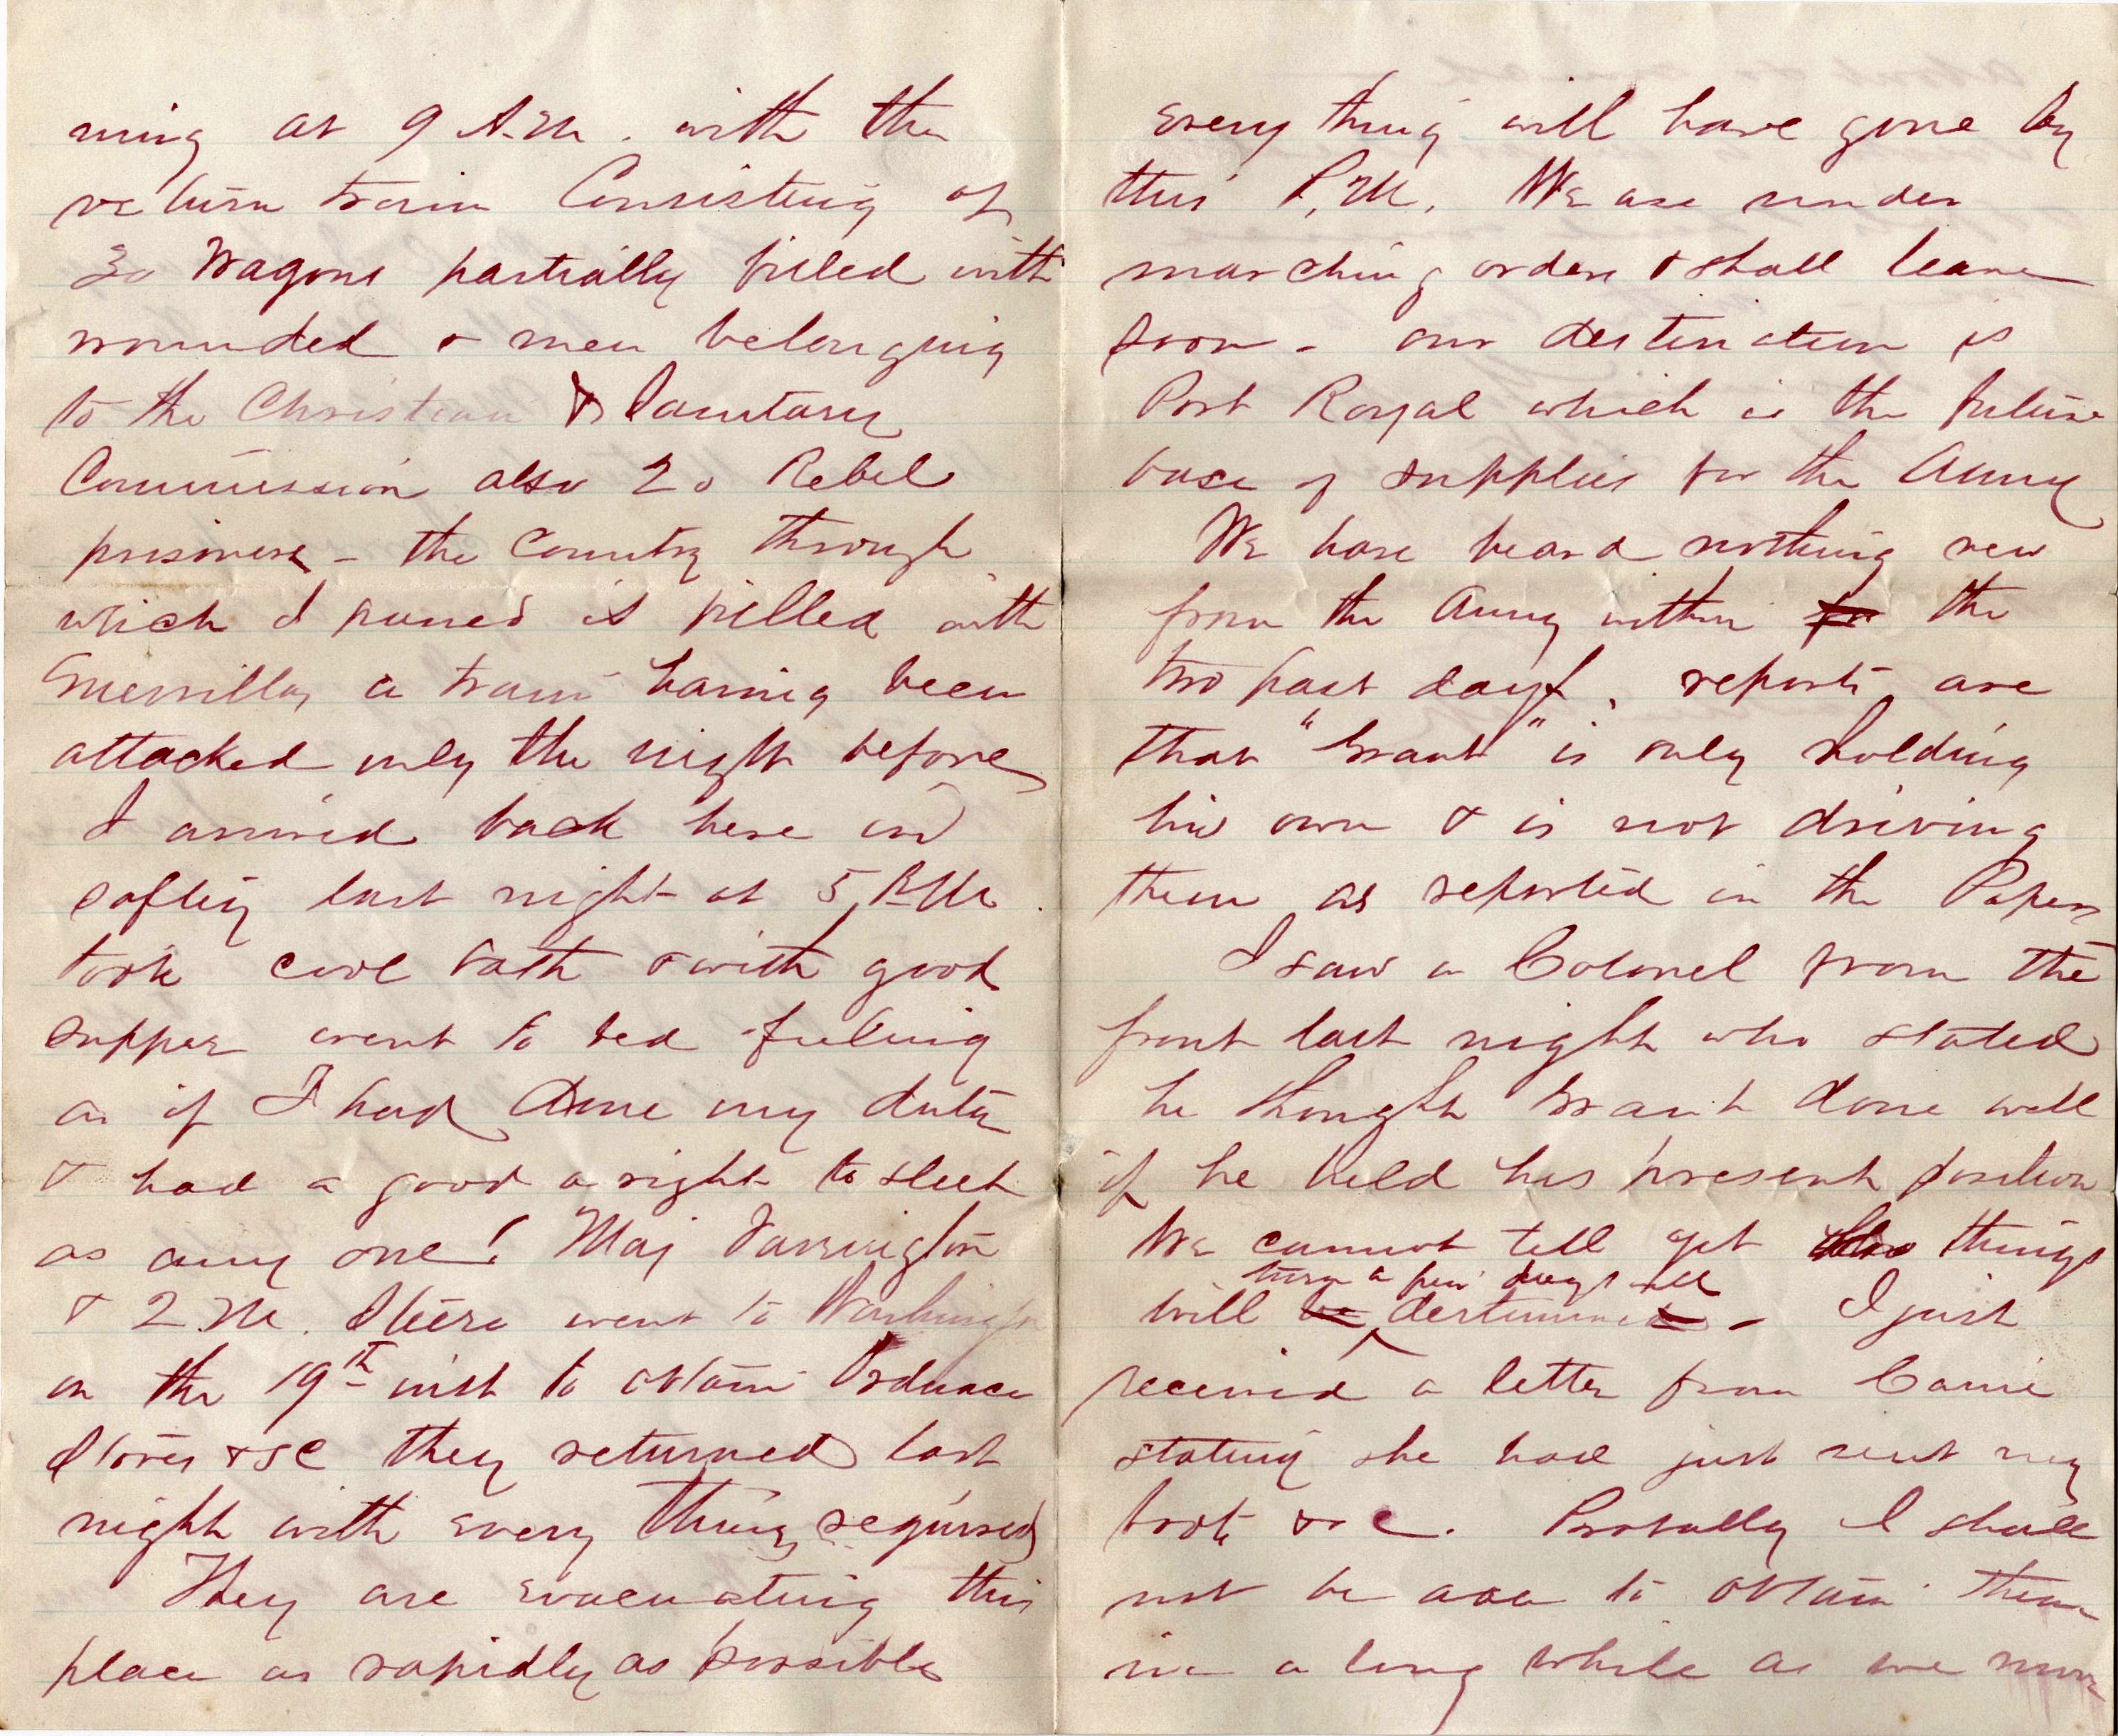 ning at 9 A.M. with the
return train Consisting of
30 Wagons partially filled with
wounded & men belonging
to the Christian & Sanitary
Commission also 20 Rebel
prisoners - the Country through
which I passed is filled with
Guerrillas a train having been
attacked only the night before
I arrived back here in
saftey last night at 5 P.M.
took cool bath & with good
supper went to bed feeling
as if I had done my duty
& had a good a right to sleep
as any one! Maj Farrington
& 2.M. Steere went to Washington
on the 19th inst to obtain Ordnance
Stores &c they returned last
night with every thing required
They are evacuating this
place as rapidly as possible
every thing will have gone by
this P.M. We are under
marching orders & shall leave
soon - our destination is
Port Royal which is the future
base of supplies for the Army
We have heard nothing new
from the Army within for the
two past days, reports are
that "Grant" is only holding
his own & is not driving
them as reported in the Papers
I saw a Colonel from the
front last night who stated
he thought Grant done well
if he held his present position
We cannot tell yet how things
turn a few days will
will be determined - I just
received a letter from Carrie
stating she had just sent my
boots &c. Probally I shall
not be able to obtain them
in a long while as we move